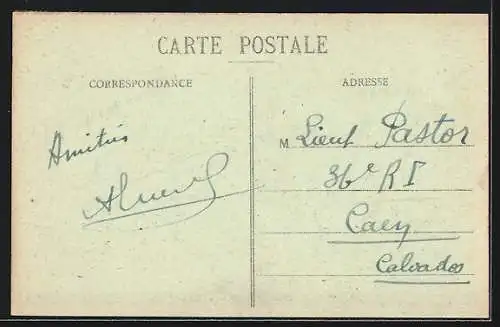 CARTE POSTALE
CORRESPONDANCE
Amitiés
ADRESSE
M Lieut Pastor
36e R I
Caen
Calvados